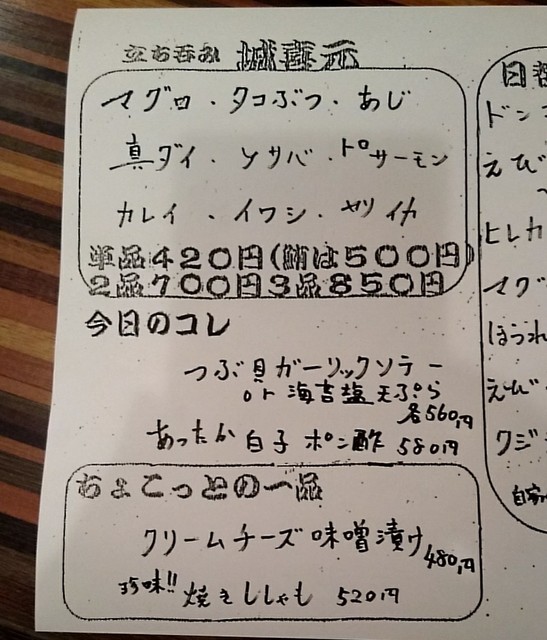 立ち呑み 城喜元
マグロ・タコぶつ・あじ
真ダイ・〆サバ・トロサーモン
カレイ・イワシ・ヤリイカ
単品420円(鮪は500円)
2品700円3品850円
今日のコレ
つぶ貝ガーリックソテー
or 海苔塩天ぷら
各560円
あったか 白子 ポン酢 580円
ちょこっとの一品
クリームチーズ味噌漬け 480円
珍味!! 焼きししゃも 520円
日替
ドン
えび
ヒレカ
マグ
ほうれ
えび
クジ
自家